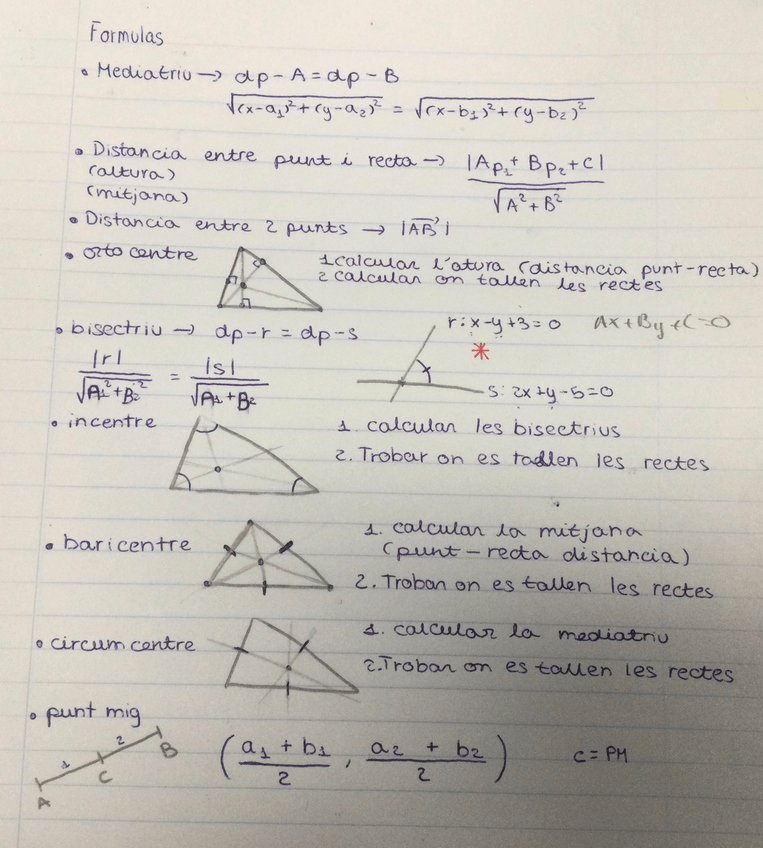 Formulas
• Mediatriu → dp - A = dp - B
√(x-a₁)² + (y-a₂)² = √(x-b₁)² + (y-b₂)²
• Distancia entre punt i recta → |Ap₁ + Bp₂ + C| / √A² + B²
(altura)
(mitjana)
• Distancia entre 2 punts → |AB|
• orto centre
1 calcular l'atura (distancia punt-recta)
2 calcular on tallen les rectes
• bisectriu → dp-r = dp-s
r: x-y+3=0 Ax+By+C=0
*
|r| / √A₁² + B₂² = |s| / √A₁ + B₂
s: 2x+y-5=0
• incentre
1. calcular les bisectrius
2. Trobar on es tallen les rectes
• baricentre
1. calcular la mitjana
(punt-recta distancia)
2. Trobar on es tallen les rectes
• circumcentre
1. calcular la mediatriu
2. Trobar on es tallen les rectes
• punt mig
1 2
A C B
(a₁ + b₁ / 2 , a₂ + b₂ / 2)
c = PM